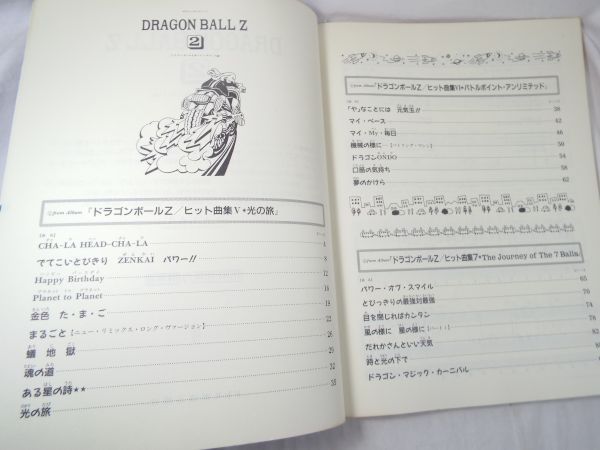 DRAGON BALL Z
2
from Album『ドラゴンボールZ／ヒット曲集V★光の旅』
CHA-LA HEAD-CHA-LA 4
でてこいとびきり ZENKAI パワー!! 8
Happy Birthday 12
Planet to Planet 18
金色 た・ま・ご
まるごと【ニュー・リミックス・ロング・ヴァージョン】 22
蟻 地 獄 26
魂の道 29
ある星の詩★★ 32
光の旅 35
from Album『ドラゴンボールZ／ヒット曲集VI★バトルポイント・アンリミテッド』
「ヤ」なことには 元気玉!! 38
マイ・ペース 42
マイ・My・毎日 46
機械の様に… 50
ドラゴンONDO 54
口笛の気持ち 58
夢のかけら 62
from Album『ドラゴンボールZ／ヒット曲集7★The Journey of The 7 Balls』
パワー・オブ・スマイル 65
とびっきりの最強対最強 70
目を閉じればカンタン 74
星の様に 星の様に 78
だれかさんといい天気
時と光の下で
ドラゴン・マジック・カーニバル